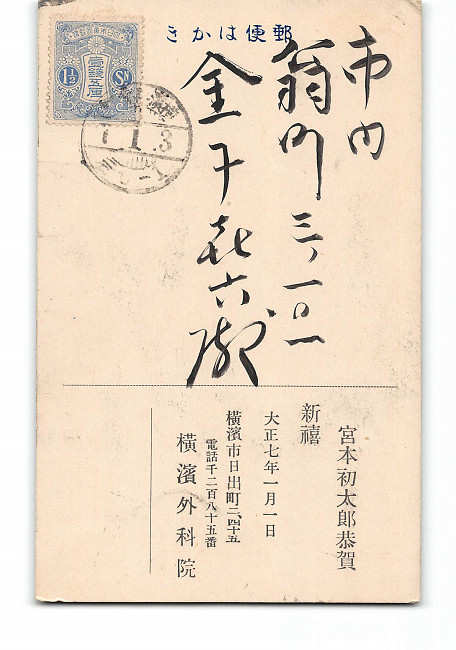 郵便はかき
大日本帝國郵便
壹錢五厘
1½ Sn
7.1.3
市内
翁町三ノ一〇一
金子㐂六殿
宮本初太郎恭賀
新禧
大正七年一月一日
橫濱市日出町二、四十五
電話千二百八十五番
橫濱外科院